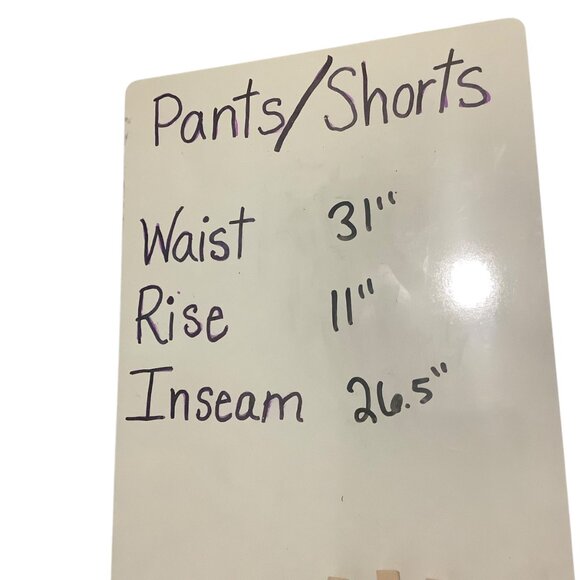 Pants/Shorts
Waist 31"
Rise 11"
Inseam 26.5"